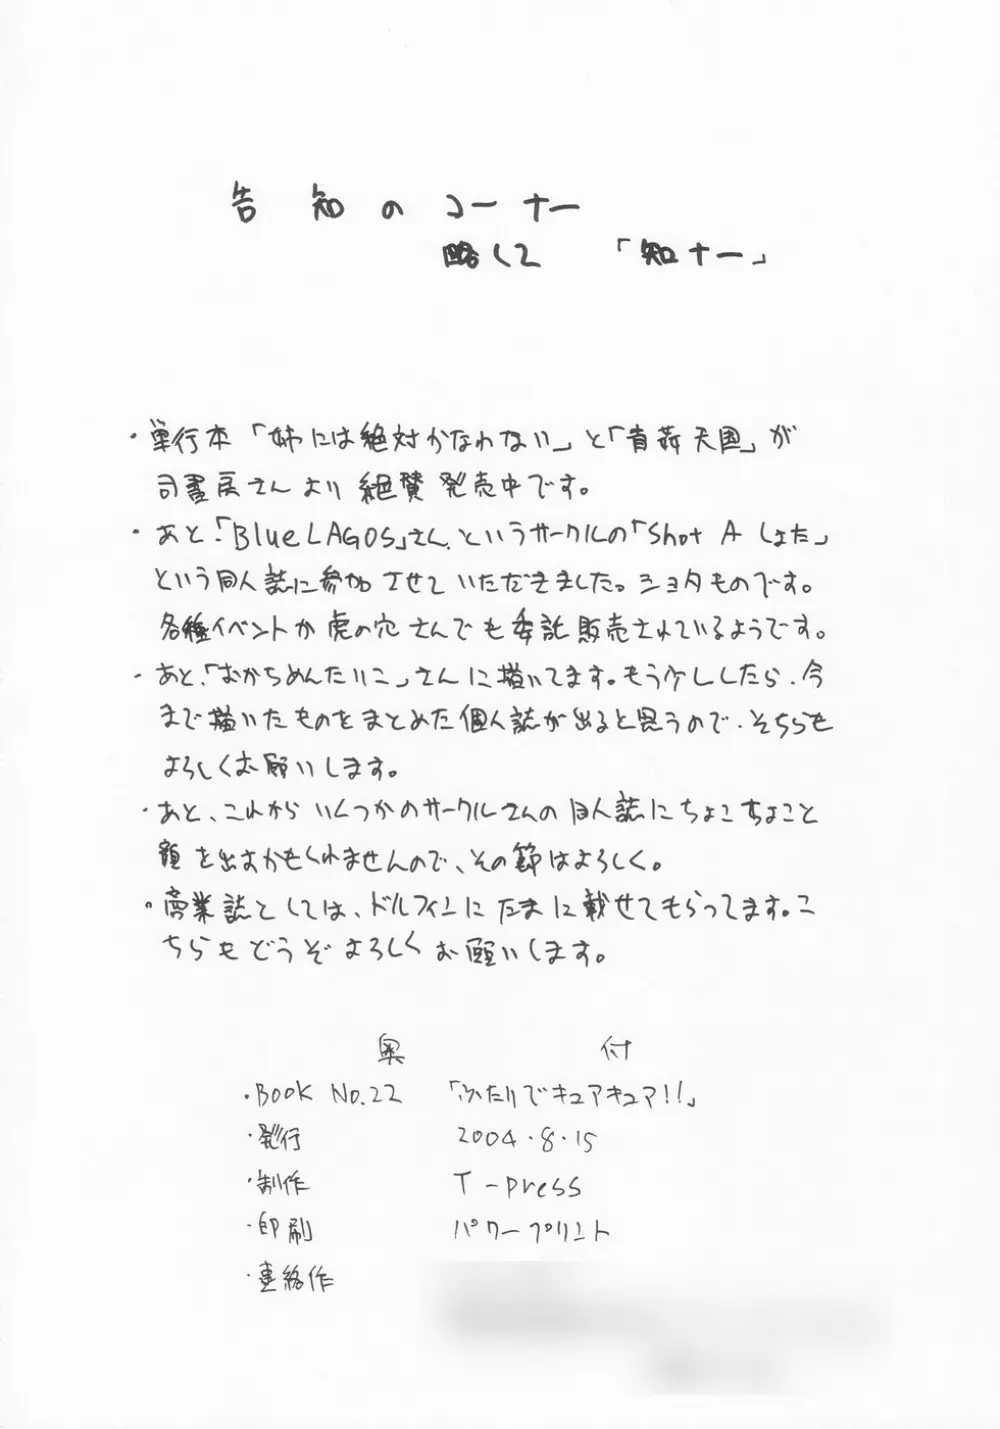 告知のコーナー
略して 「知ナー」
・単行本「姉には絶対かなわない」と「青姦天国」が
司書房さんより絶賛発売中です。
・あと、「Blue LAGOS」さん、というサークルの「Shot A しょた」
という同人誌に参加させていただきました。ショタものです。
各種イベントか虎の穴さんでも委託販売されているようです。
・あと、「おかちめんたいこ」さんに描いてます。もう少ししたら、今
まで描いたものをまとめた個人誌が出ると思うので、そちらも
よろしくお願いします。
・あと、これからいくつかのサークルさんの同人誌にちょこちょこと
顔を出すかもくれませんので、その節はよろしく。
・商業誌としては、ドルフィンにたまに載せてもらってます。こ
ちらもどうぞよろしくお願いします。
奥 付
・BOOK No.22 「ふたりでキュアキュア!!」
・発行 2004・8・15
・制作 T-press
・印刷 パワープリント
・連絡作